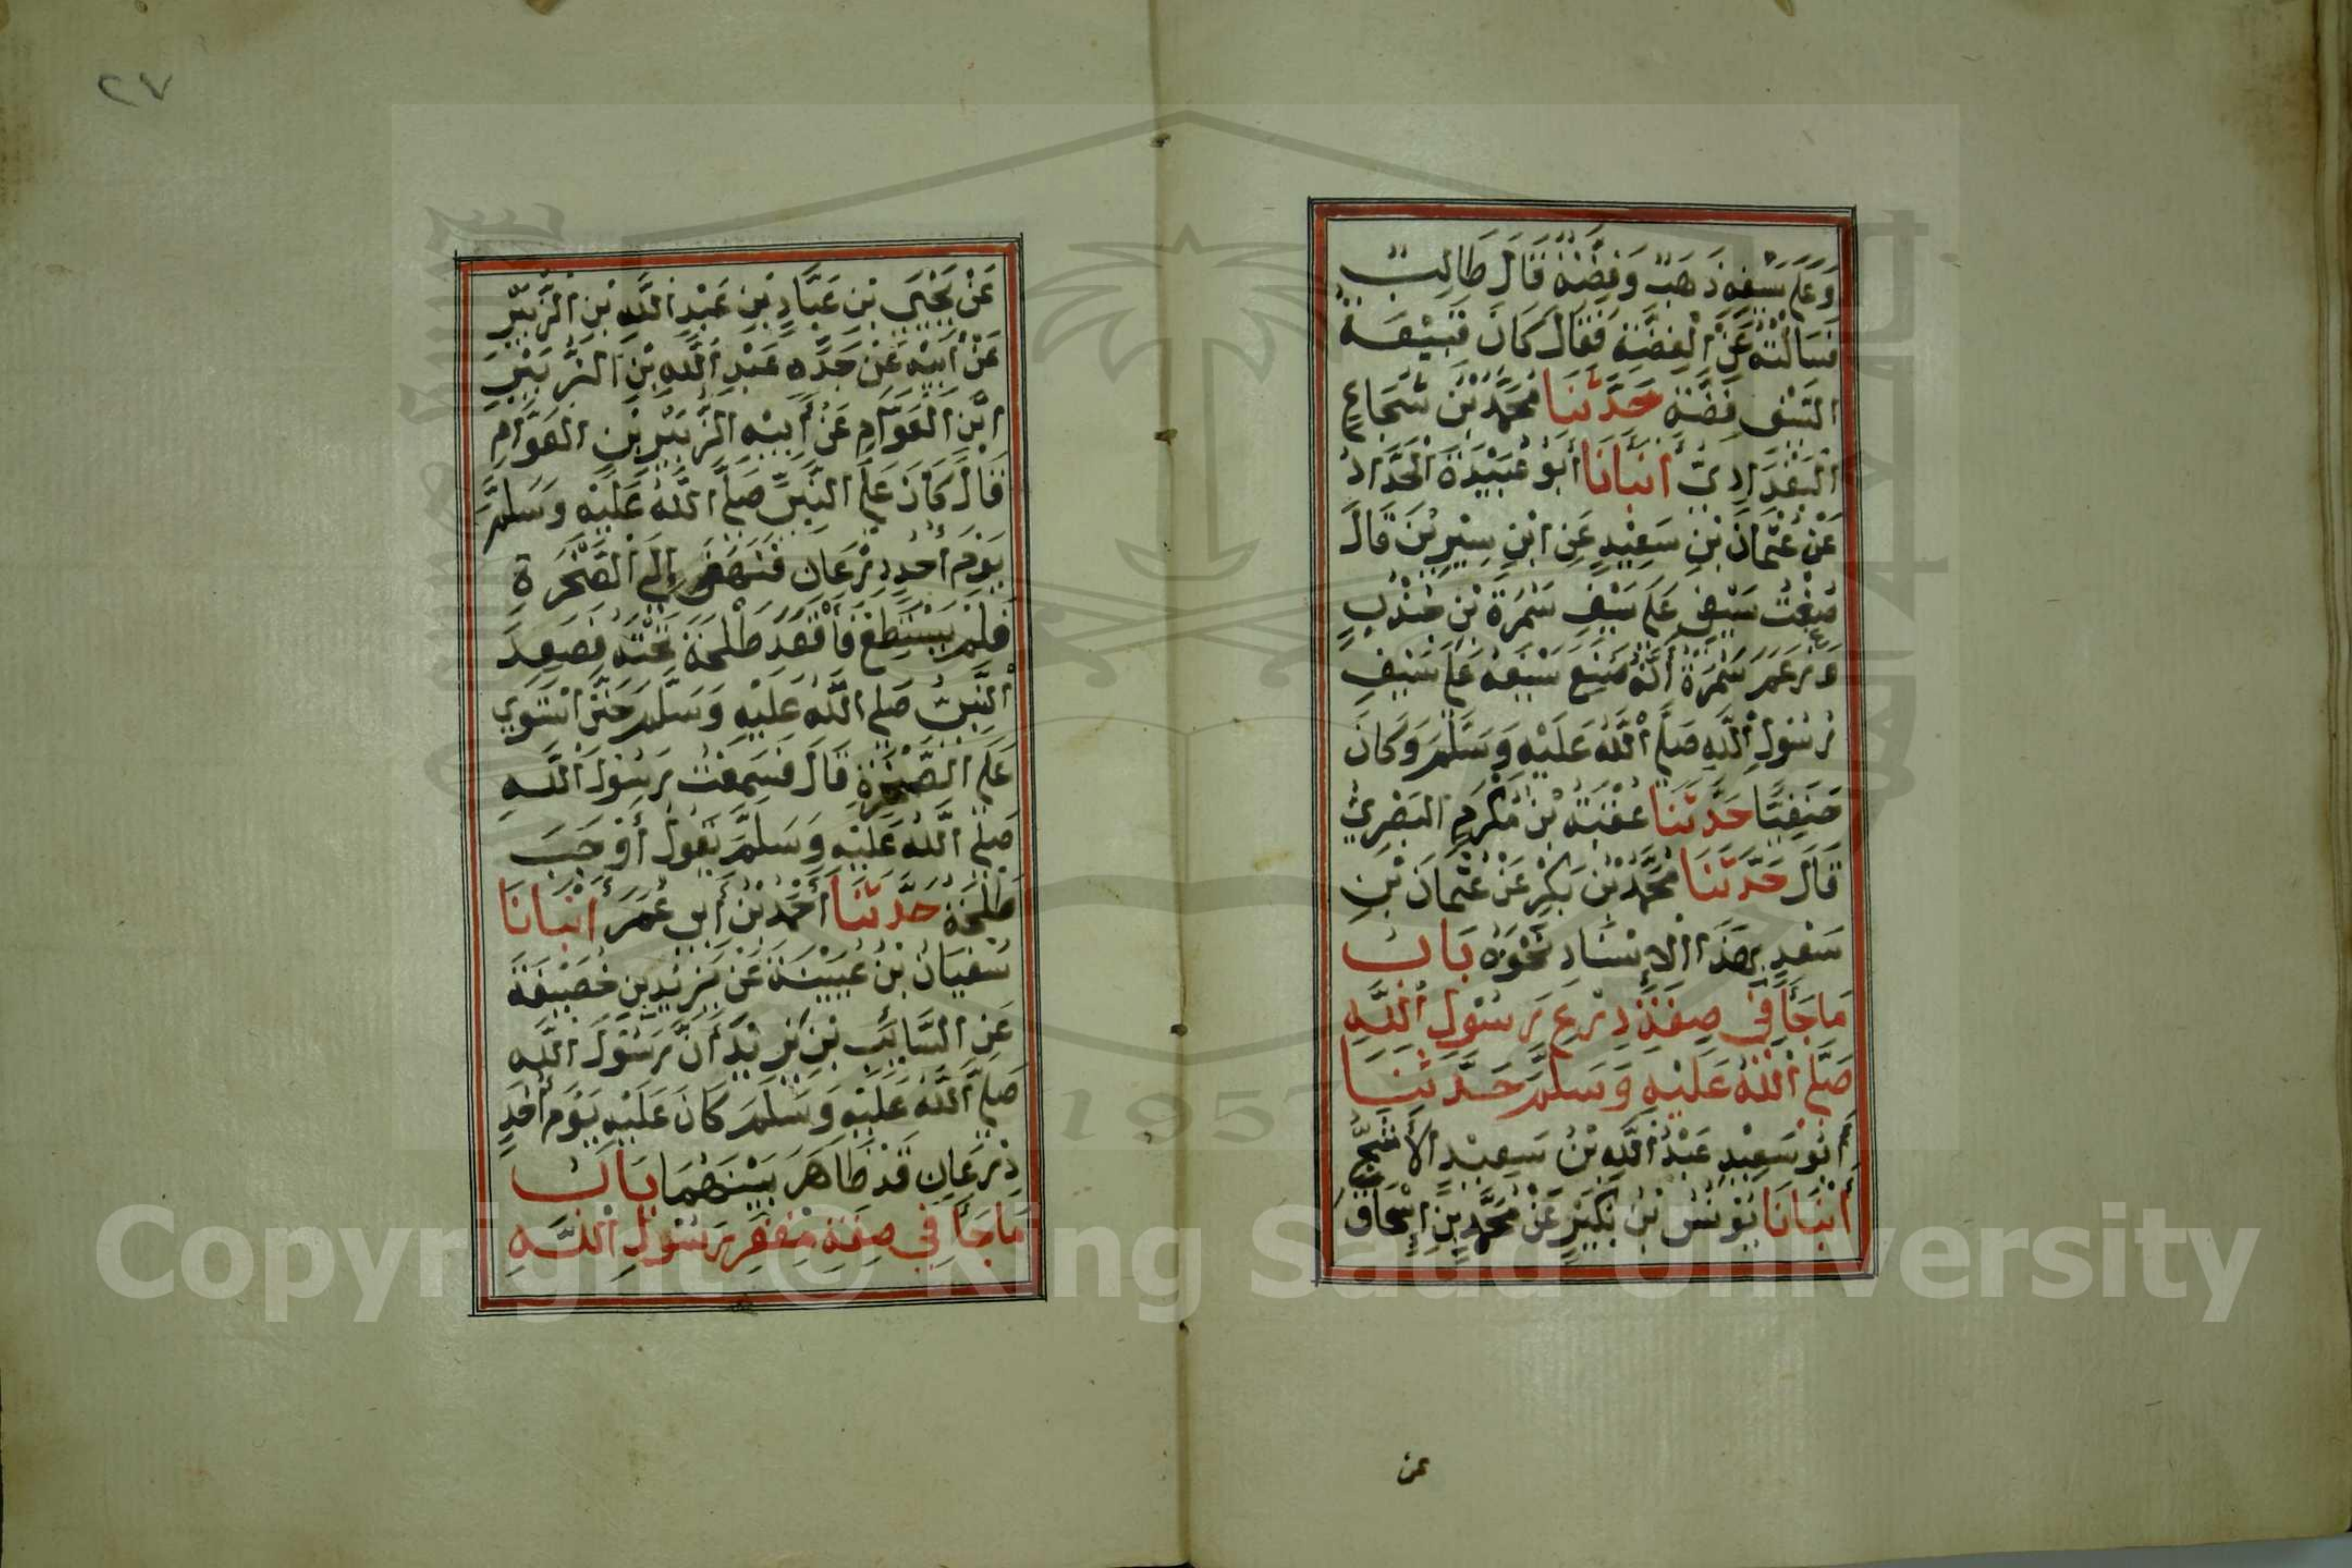 وَعَلَى سَيْفِهِ ذَهَبٌ وَفِضَّةٌ قَالَ طَالِبٌ
فَسَأَلْتُهُ عَنِ الْفِضَّةِ فَقَالَ كَانَ قَبِيْعَةُ
السَّيْفِ فِضَّةً حَدَّثَنَا مُحَمَّدُ بْنُ شُجَاعٍ
الْبَغْدَادِيُّ أَنْبَأَنَا أَبُو عُبَيْدَةَ الْحَدَّادُ
عَنْ عُثْمَانَ بْنِ سَعِيْدٍ عَنِ ابْنِ سِيْرِيْنَ قَالَ
صَنَعْتُ سَيْفِي عَلَى سَيْفِ سَمُرَةَ بْنِ جُنْدُبٍ
وَزَعَمَ سَمُرَةُ أَنَّهُ صَنَعَ سَيْفَهُ عَلَى سَيْفِ
رَسُولِ اللَّهِ صَلَّى اللَّهُ عَلَيْهِ وَسَلَّمَ وَكَانَ
حَنَفِيًّا حَدَّثَنَا عُقْبَةُ بْنُ مُكْرَمٍ الْبَصْرِيُّ
قَالَ حَدَّثَنَا مُحَمَّدُ بْنُ بَكْرٍ عَنْ عُثْمَانَ بْنِ
سَعْدٍ بِهَذَا الْإِسْنَادِ نَحْوَهُ بَابُ
مَا جَاءَ فِي صِفَةِ دِرْعِ رَسُولِ اللَّهِ
صَلَّى اللَّهُ عَلَيْهِ وَسَلَّمَ حَدَّثَنَا
أَبُو سَعِيْدٍ عَبْدُ اللَّهِ بْنُ سَعِيْدٍ الْأَشَجُّ
أَنْبَأَنَا يُوْنُسُ بْنُ بُكَيْرٍ عَنْ مُحَمَّدِ بْنِ إِسْحَاقَ
عن
٢٧
عَنْ يَحْيَى بْنِ عَبَّادِ بْنِ عَبْدِ اللَّهِ بْنِ الزُّبَيْرِ
عَنْ أَبِيْهِ عَنْ جَدِّهِ عَبْدِ اللَّهِ بْنِ الزُّبَيْرِ
ابْنِ الْعَوَّامِ عَنْ أَبِيْهِ الزُّبَيْرِ بْنِ الْعَوَّامِ
قَالَ كَانَ عَلَى النَّبِيِّ صَلَّى اللَّهُ عَلَيْهِ وَسَلَّمَ
يَوْمَ أُحُدٍ دِرْعَانِ فَنَهَضَ إِلَى الصَّخْرَةِ
فَلَمْ يَسْتَطِعْ فَأَقْعَدَ طَلْحَةَ تَحْتَهُ فَصَعِدَ
النَّبِيُّ صَلَّى اللَّهُ عَلَيْهِ وَسَلَّمَ حَتَّى اسْتَوَى
عَلَى الصَّخْرَةِ قَالَ فَسَمِعْتُ رَسُولَ اللَّهِ
صَلَّى اللَّهُ عَلَيْهِ وَسَلَّمَ يَقُولُ أَوْجَبَ
طَلْحَةُ حَدَّثَنَا أَحْمَدُ بْنُ أَبِي عُمَرَ أَنْبَأَنَا
سُفْيَانُ بْنُ عُيَيْنَةَ عَنْ يَزِيْدَ بْنِ خُصَيْفَةَ
عَنِ السَّايِبِ بْنِ يَزِيْدَ أَنَّ رَسُولَ اللَّهِ
صَلَّى اللَّهُ عَلَيْهِ وَسَلَّمَ كَانَ عَلَيْهِ يَوْمَ أُحُدٍ
دِرْعَانِ قَدْ ظَاهَرَ بَيْنَهُمَا بَابُ
مَا جَاءَ فِي صِفَةِ مِغْفَرِ رَسُولِ اللَّهِ
1957
Copyright © King Saud University